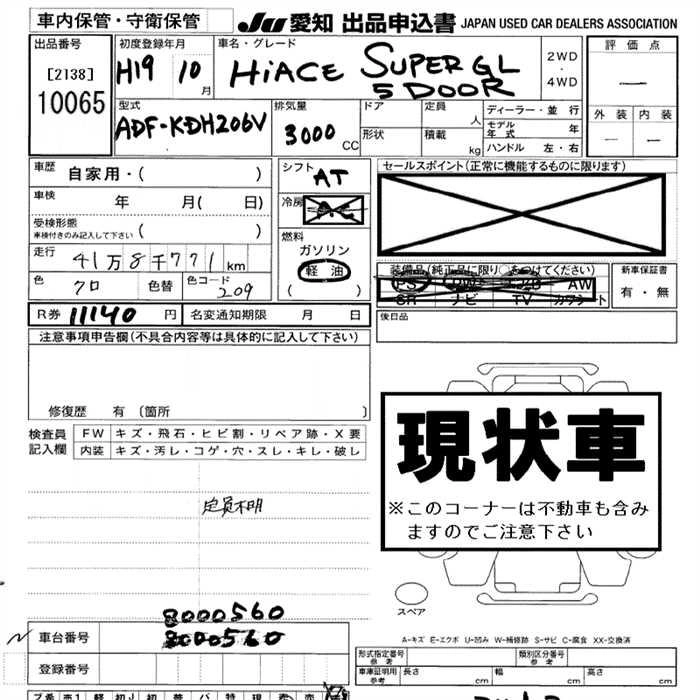 車内保管・守衛保管
JU 愛知 出品申込書 JAPAN USED CAR DEALERS ASSOCIATION
出品番号
[2138]
10065
初度登録年月
H19 10月
車名・グレード
HiACE SUPER GL
5DOOR
2WD
・
4WD
評価点
—
外装 内装
— —
型式
ADF-KDH206V
排気量
3000 CC
ドア
形状
定員 人
積載 kg
ディーラー・並行
モデル年式 年
ハンドル 左・右
車歴 自家用・( )
車検 年 月( 日)
受検形態
車検付きのみ記入して下さい ( )
走行 41万8千771km
色 クロ 色替 色コード 209
シフト AT
冷房
燃料
ガソリン
軽油
( )
セールスポイント(正常に機能するものに限ります)
装備品(純正品に限り○をつけてください)
PS PW エアB AW
SR ナビ TV カワシート
新車保証書
有・無
R券 11140 円 名変通知期限 月 日
後日品
注意事項申告欄(不具合内容等は具体的に記入して下さい)
修復歴 有 〔箇所 〕
検査員
記入欄
FW キズ・飛石・ヒビ割・リペア跡・X要
内装 キズ・汚レ・コゲ・穴・スレ・キレ・破レ
定員不明
現状車
※このコーナーは不動車も含み
ますのでご注意下さい
スペア
8000560
車台番号 8000560
登録番号
A-キズ E-エクボ U-凹み W-補修跡 S-サビ C-腐食 XX-交換済
形式指定番号
参考
類別区分番号
参考
車庫証明用
参考
長さ cm
幅 cm
高さ cm